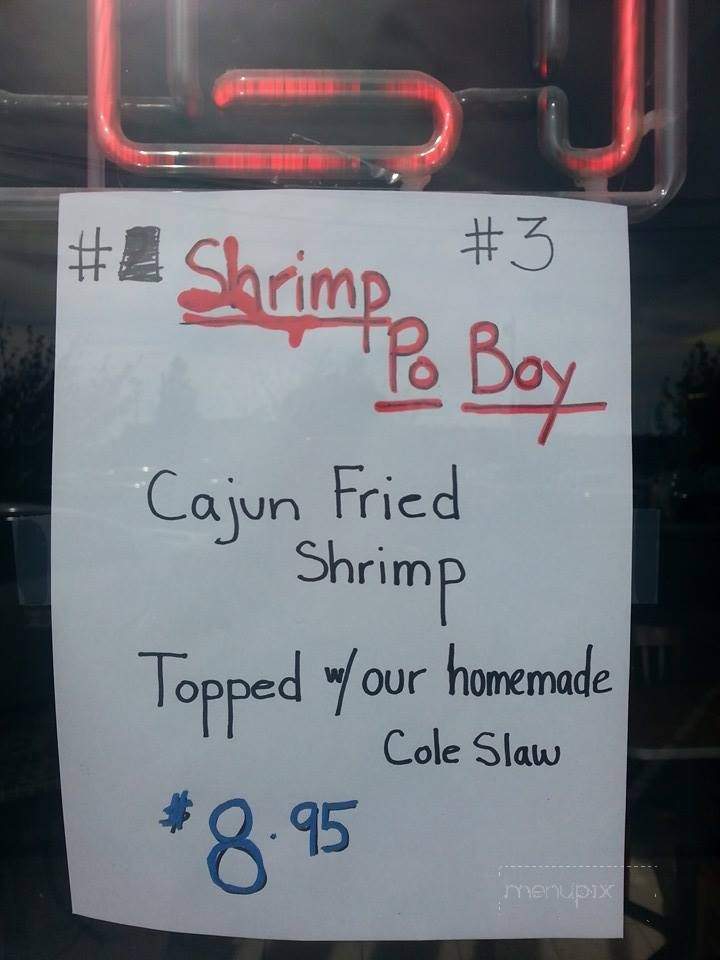 # #3
Shrimp
Po Boy
Cajun Fried
Shrimp
Topped w/our homemade
Cole Slaw
$8.95
menupix